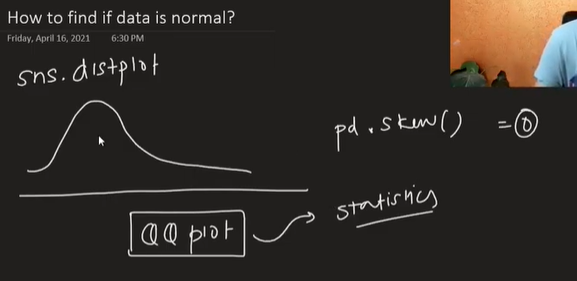 How to find if data is normal?
Friday, April 16, 2021 6:30 PM
sns.distplot
pd.skew() = 0
QQ plot
statistics